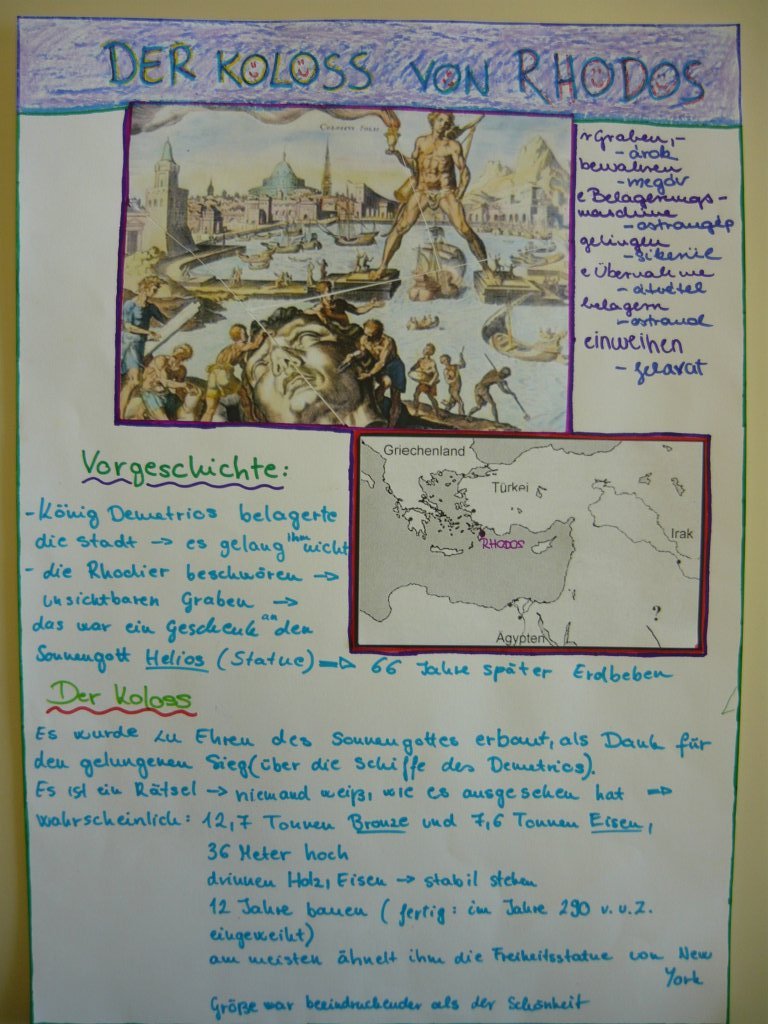 DER KOLOSS VON RHODOS
r Graben,-
- árok
bewahren
- megóv
e Belagerungs-
maschine
- ostromgép
gelingen
- sikerül
e Übernahme
- átvétel
belagern
- ostromol
einweihen
- felavat
Griechenland
Türkei
Irak
RHODOS
?
Ägypten
Vorgeschichte:
- König Demetrios belagerte
die Stadt → es gelang ihm nicht
- die Rhodier beschwören →
unsichtbaren Graben →
das war ein Geschenk an den
Sonnengott Helios (Statue) → 66 Jahre später Erdbeben
Der Koloss
Es wurde zu Ehren des Sonnengottes erbaut, als Dank für
den gelungenen Sieg (über die Schiffe des Demetrios).
Es ist ein Rätsel → niemand weiß, wie es ausgesehen hat →
wahrscheinlich: 12,7 Tonnen Bronze und 7,6 Tonnen Eisen,
36 Meter hoch
drinnen Holz, Eisen → stabil stehen
12 Jahre bauen (fertig: im Jahre 290 v.u.Z.
eingeweiht)
am meisten ähnelt ihm die Freiheitsstatue von New
York
Größe war beeindruckender als der Schönheit